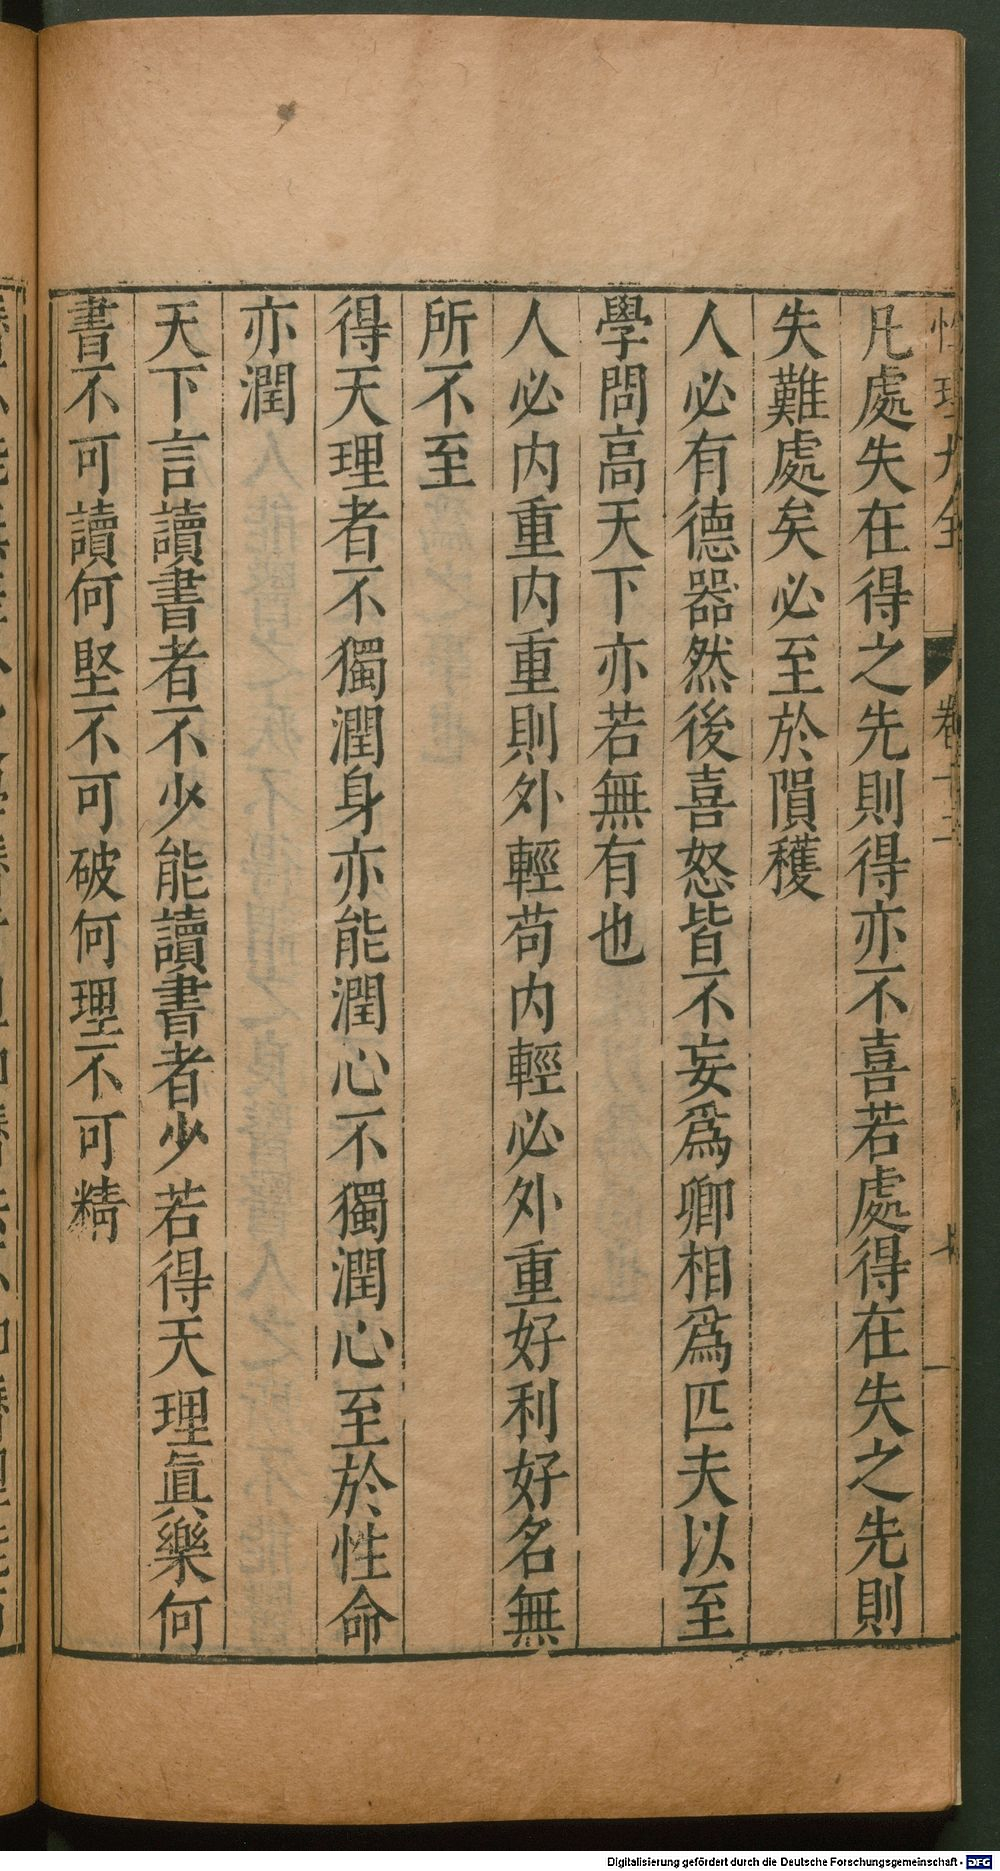 性理大全 卷十二
凡處失在得之先則得亦不喜若處得在失之先則
失難處矣必至於隕穫
人必有德器然後喜怒皆不妄爲卿相爲匹夫以至
學問高天下亦若無有也
人必内重内重則外輕苟内輕必外重好利好名無
所不至
得天理者不獨潤身亦能潤心不獨潤心至於性命
亦潤
天下言讀書者不少能讀書者少若得天理眞樂何
書不可讀何堅不可破何理不可精
Digitalisierung gefördert durch die Deutsche Forschungsgemeinschaft - DFG